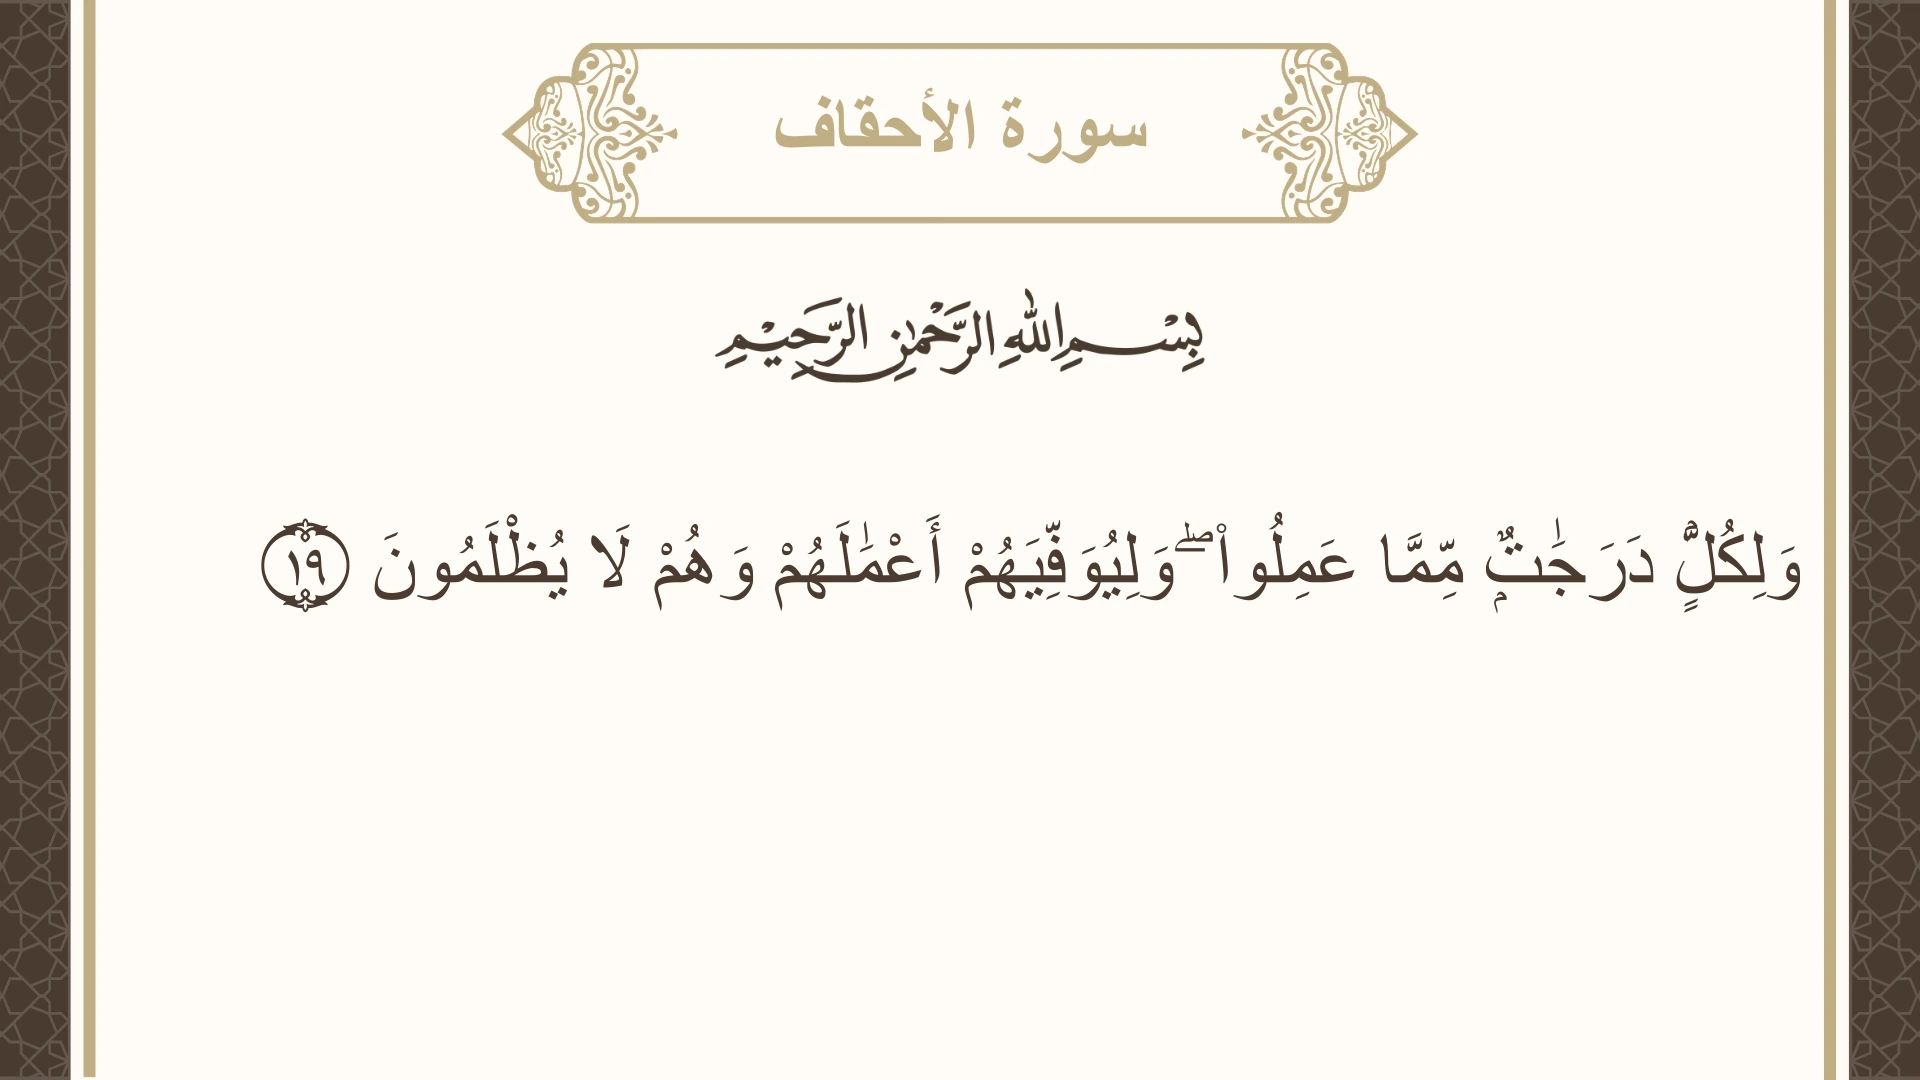 سورة الأحقاف
بِسْمِ اللهِ الرَّحْمٰنِ الرَّحِيْمِ
وَلِكُلٍّۢ دَرَجَٰتٌۭ مِّمَّا عَمِلُوا۟ ۖ وَلِيُوَفِّيَهُمْ أَعْمَٰلَهُمْ وَهُمْ لَا يُظْلَمُونَ ١٩